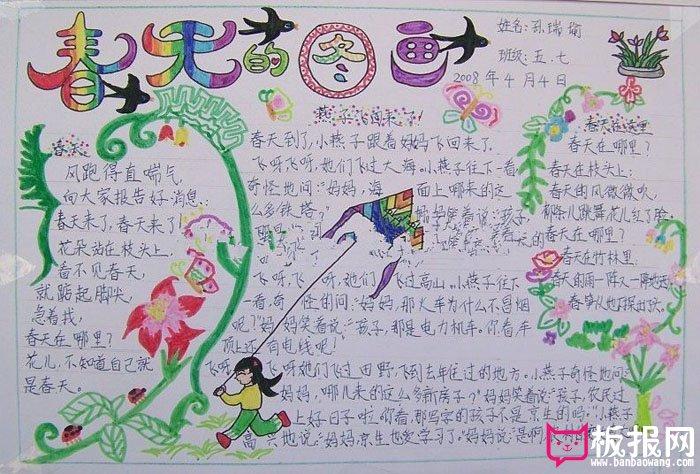 春天的图画
姓名:孙瑞瑜
班级:五.七
2008年4月4日
春天
风跑得直喘气,
向大家报告好消息:
春天来了,春天来了!
花朵站在枝头上,
看不见春天,
就踮起脚尖,
急着找,
春天在哪里?
花儿,不知道自己就
是春天。
燕子飞回来了!
春天到了,小燕子跟着妈妈飞回来了。
飞呀飞呀,她们飞过大海,小燕子往下一看
奇怪地问:“妈妈,海面上哪来的这
么多铁塔?
妈笑着说:“孩子,
飞呀,飞呀,她们飞过高山,小燕子往下
一看,奇怪的问:“妈妈,那火车为什么不冒烟
呢?”妈妈笑着说:“孩子,那是电力机车。你看车
顶上还有电线呢!
飞呀飞呀她们飞过田野,飞到去年住过的地方。小燕子奇怪地问:
妈妈,哪儿来的这么多新房子?”妈妈笑着说:“孩子,农民过
上好日子啦。你看,那写字的孩子不是京生的吗?”小燕子
高兴地说:“妈妈,京生也爱学习了。”妈妈说:“是啊
春天在哪里
春天在哪里?
春天在枝头上:
春天的风微微吹,
柳条儿跳舞花儿红了脸。
春天在哪里?
春天在竹林里:
春天的雨一阵又一阵
板报网
www.banbaowang.com